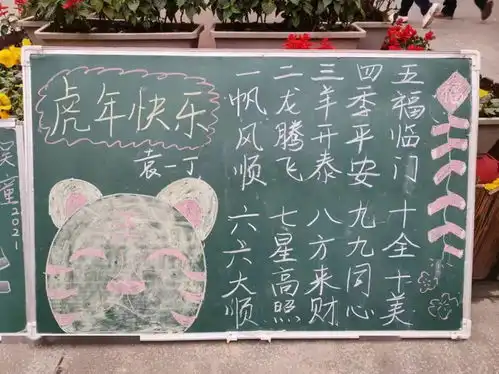 虎年快乐
袁一丁
一帆风顺
二龙腾飞
三羊开泰
四季平安
五福临门
六六大顺
七星高照
八方来财
九九同心
十全十美
福
童2021